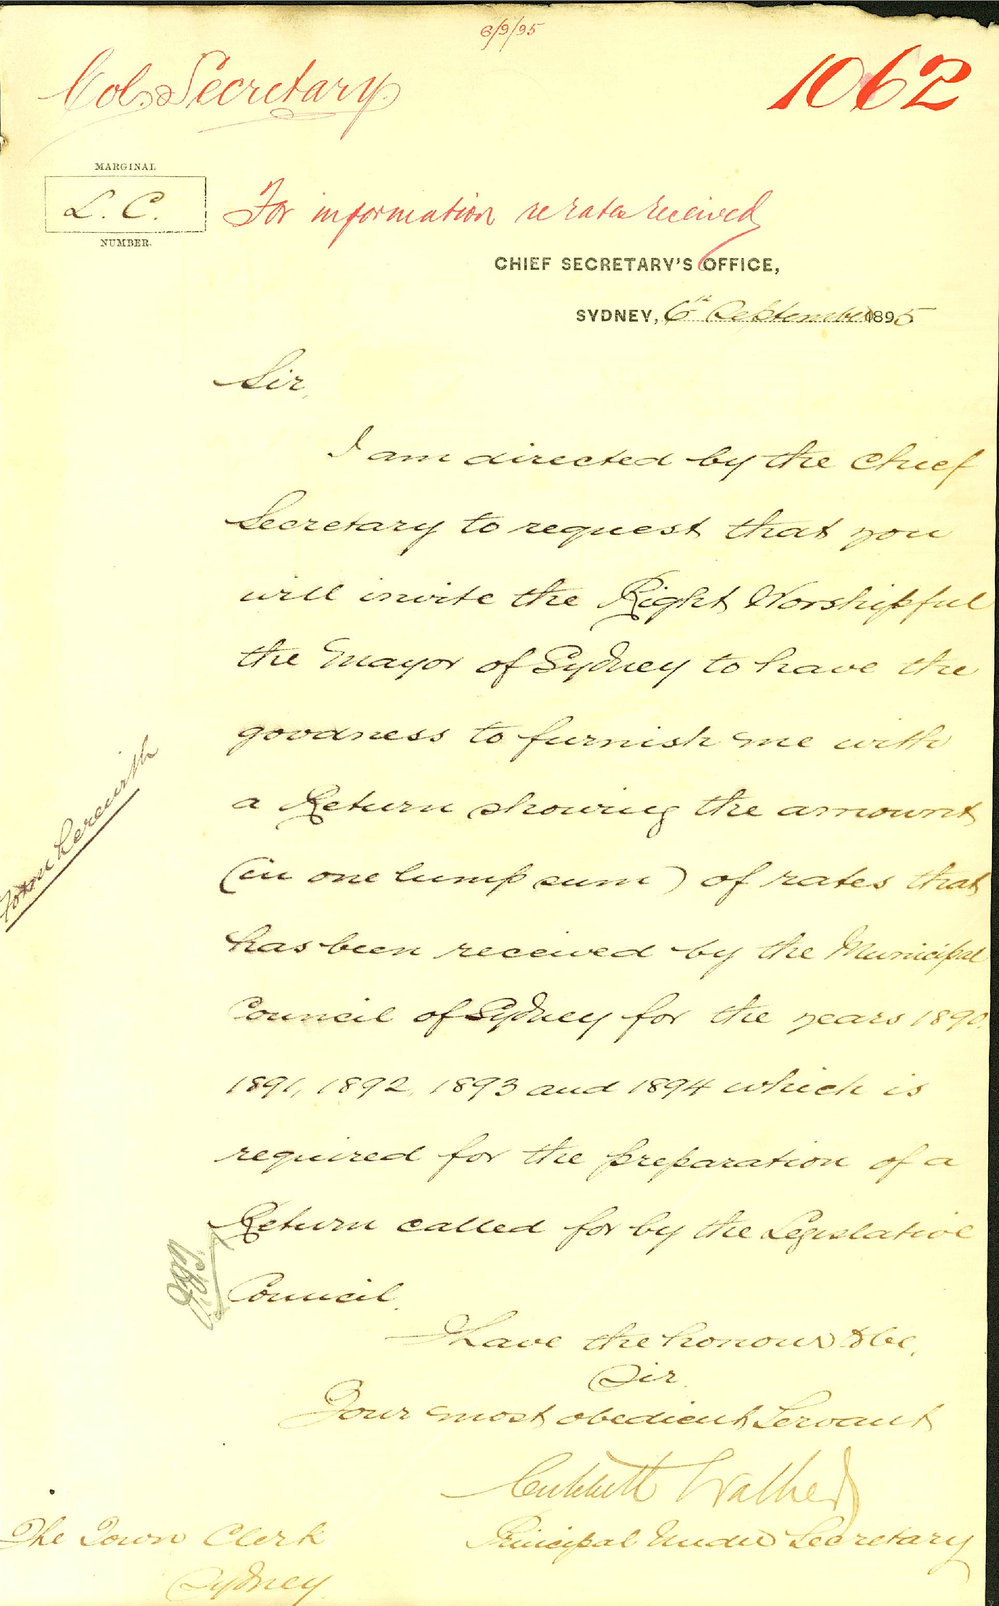 6/9/95
Col. Secretary
1062
MARGINAL
L. C.
NUMBER.
For information re rates received
CHIEF SECRETARY'S OFFICE,
SYDNEY, 6th September 1895
Sir,
I am directed by the Chief
Secretary to request that you
will invite the Right Worshipful
the Mayor of Sydney to have the
goodness to furnish me with
a Return showing the amount
(in one lump sum) of rates that
has been received by the Municipal
Council of Sydney for the years 1890,
1891, 1892, 1893 and 1894 which is
required for the preparation of a
Return called for by the Legislative
Council.
Form herewith
I have the honour &be,
Sir,
Your most obedient Servant
Critchett Walker
Principal Under Secretary
The Town Clerk
Sydney